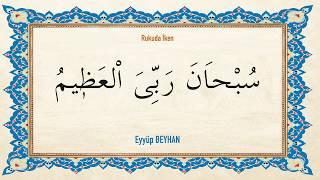 Rukuda İken
سُبْحَانَ رَبِّىَ الْعَظٖيمُ
Eyyüp BEYHAN